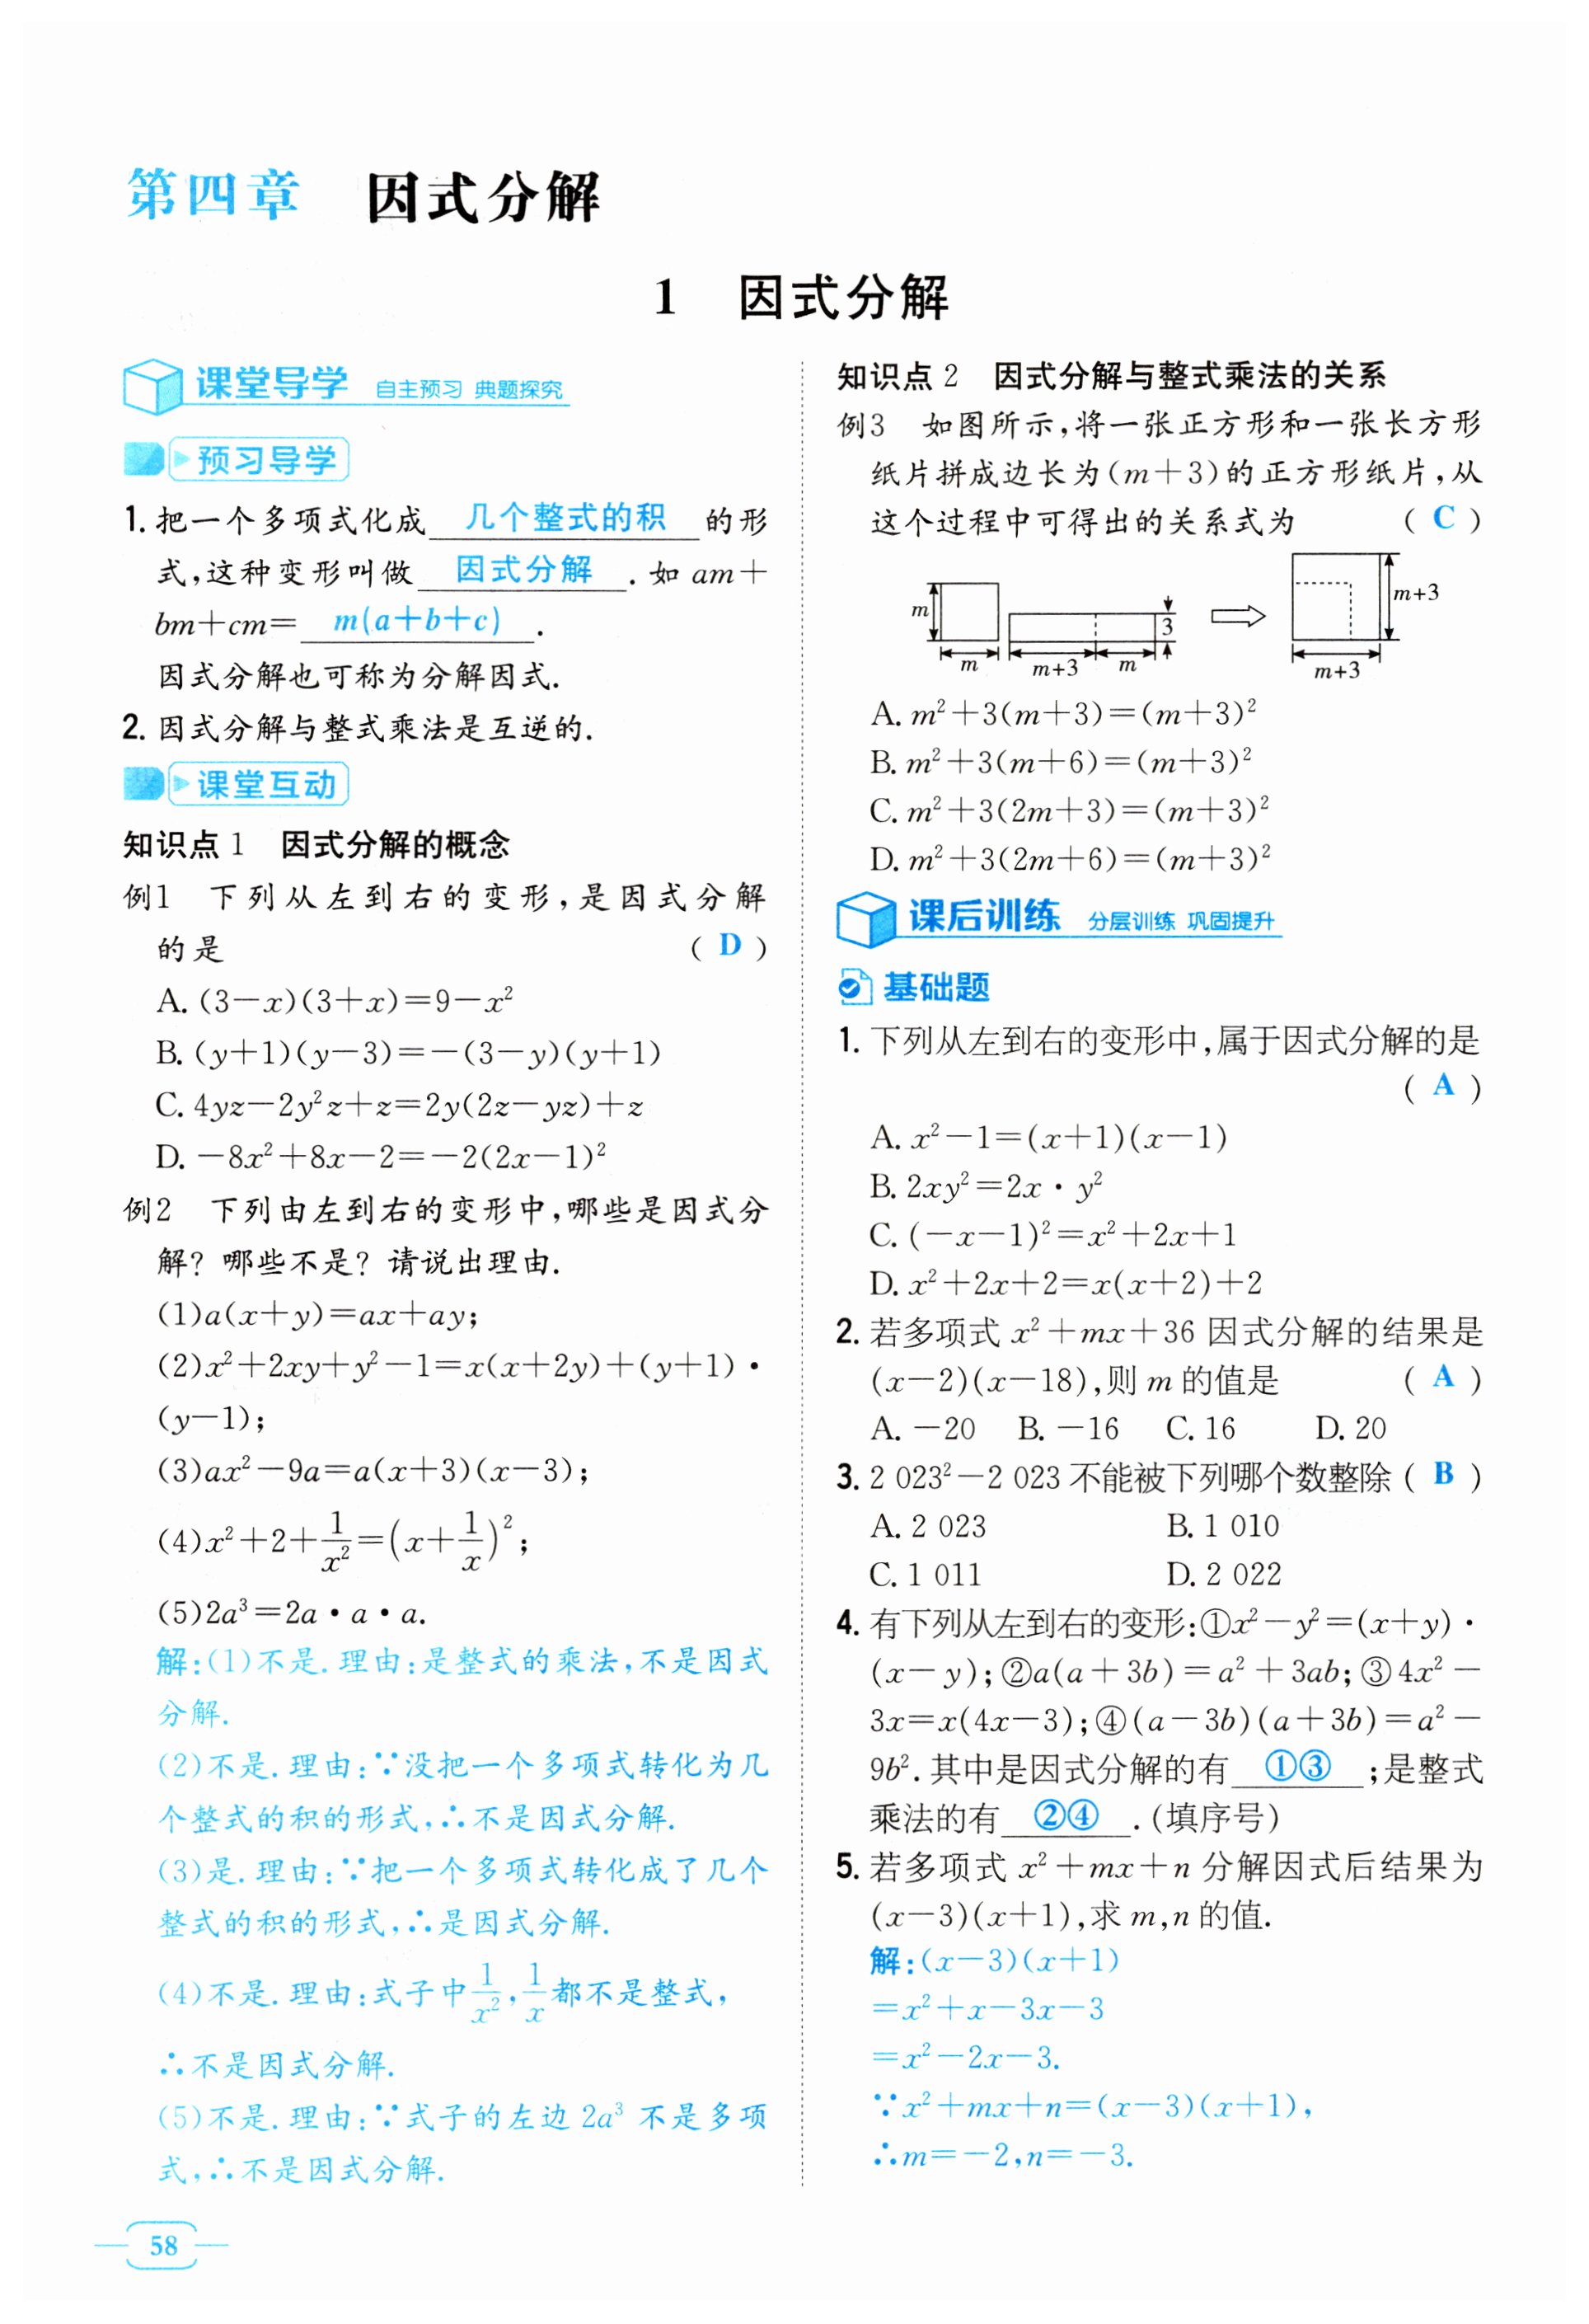 第四章 因式分解
1 因式分解
课堂导学 自主预习 典题探究
预习导学
1. 把一个多项式化成 几个整式的积 的形
式,这种变形叫做 因式分解 . 如 am+
bm+cm= m(a+b+c) .
因式分解也可称为分解因式.
2. 因式分解与整式乘法是互逆的.
课堂互动
知识点 1 因式分解的概念
例1 下列从左到右的变形,是因式分解
的是 ( D )
A. (3-x)(3+x)=9-x²
B. (y+1)(y-3)=-(3-y)(y+1)
C. 4yz-2y²z+z=2y(2z-yz)+z
D. -8x²+8x-2=-2(2x-1)²
例2 下列由左到右的变形中,哪些是因式分
解? 哪些不是? 请说出理由.
(1)a(x+y)=ax+ay;
(2)x²+2xy+y²-1=x(x+2y)+(y+1)·
(y-1);
(3)ax²-9a=a(x+3)(x-3);
(4)x²+2+1/x²=(x+1/x)²;
(5)2a³=2a·a·a.
解:(1)不是. 理由:是整式的乘法,不是因式
分解.
(2)不是. 理由:∵没把一个多项式转化为几
个整式的积的形式,∴不是因式分解.
(3)是. 理由:∵把一个多项式转化成了几个
整式的积的形式,∴是因式分解.
(4)不是. 理由:式子中1/x²,1/x都不是整式,
∴不是因式分解.
(5)不是. 理由:∵式子的左边 2a³ 不是多项
式,∴不是因式分解.
58
知识点 2 因式分解与整式乘法的关系
例3 如图所示,将一张正方形和一张长方形
纸片拼成边长为(m+3)的正方形纸片,从
这个过程中可得出的关系式为 ( C )
m m m+3 m 3 m+3 m+3
A. m²+3(m+3)=(m+3)²
B. m²+3(m+6)=(m+3)²
C. m²+3(2m+3)=(m+3)²
D. m²+3(2m+6)=(m+3)²
课后训练 分层训练 巩固提升
基础题
1. 下列从左到右的变形中,属于因式分解的是
( A )
A. x²-1=(x+1)(x-1)
B. 2xy²=2x·y²
C. (-x-1)²=x²+2x+1
D. x²+2x+2=x(x+2)+2
2. 若多项式 x²+mx+36 因式分解的结果是
(x-2)(x-18),则 m 的值是 ( A )
A. -20 B. -16 C. 16 D. 20
3. 2 023²-2 023 不能被下列哪个数整除 ( B )
A. 2 023 B. 1 010
C. 1 011 D. 2 022
4. 有下列从左到右的变形:①x²-y²=(x+y)·
(x-y);②a(a+3b)=a²+3ab;③4x²-
3x=x(4x-3);④(a-3b)(a+3b)=a²-
9b². 其中是因式分解的有 ①③ ;是整式
乘法的有 ②④ . (填序号)
5. 若多项式 x²+mx+n 分解因式后结果为
(x-3)(x+1),求 m,n 的值.
解:(x-3)(x+1)
=x²+x-3x-3
=x²-2x-3.
∵x²+mx+n=(x-3)(x+1),
∴m=-2,n=-3.